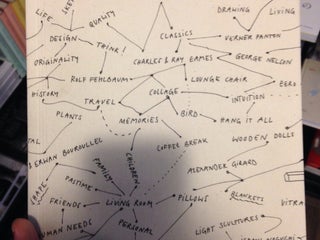 LIFE
SKE
QUALITY
DRAWING
LIVING
DESIGN
CLASSICS
VERNER PANTON
THINK!
ORIGINALITY
CHARLES & RAY EAMES
GEORGE NELSON
ROLF FEHLBAUM
LOUNGE CHAIR
ZERO
HISTORY
COLLAGE
INTUITION
TRAVEL
PLANTS
MEMORIES
BIRD
HANG IT ALL
WOODEN DOLLS
& ERWAN BOUROULLEC
COFFEE BREAK
CHILDREN
FAMILY
ALEXANDER GIRARD
PASTIME
BLANKETS
FRIENDS
LIVING ROOM
PILLOWS
VITRA
HUMAN NEEDS
PERSONAL
LIGHT SCULPTURES